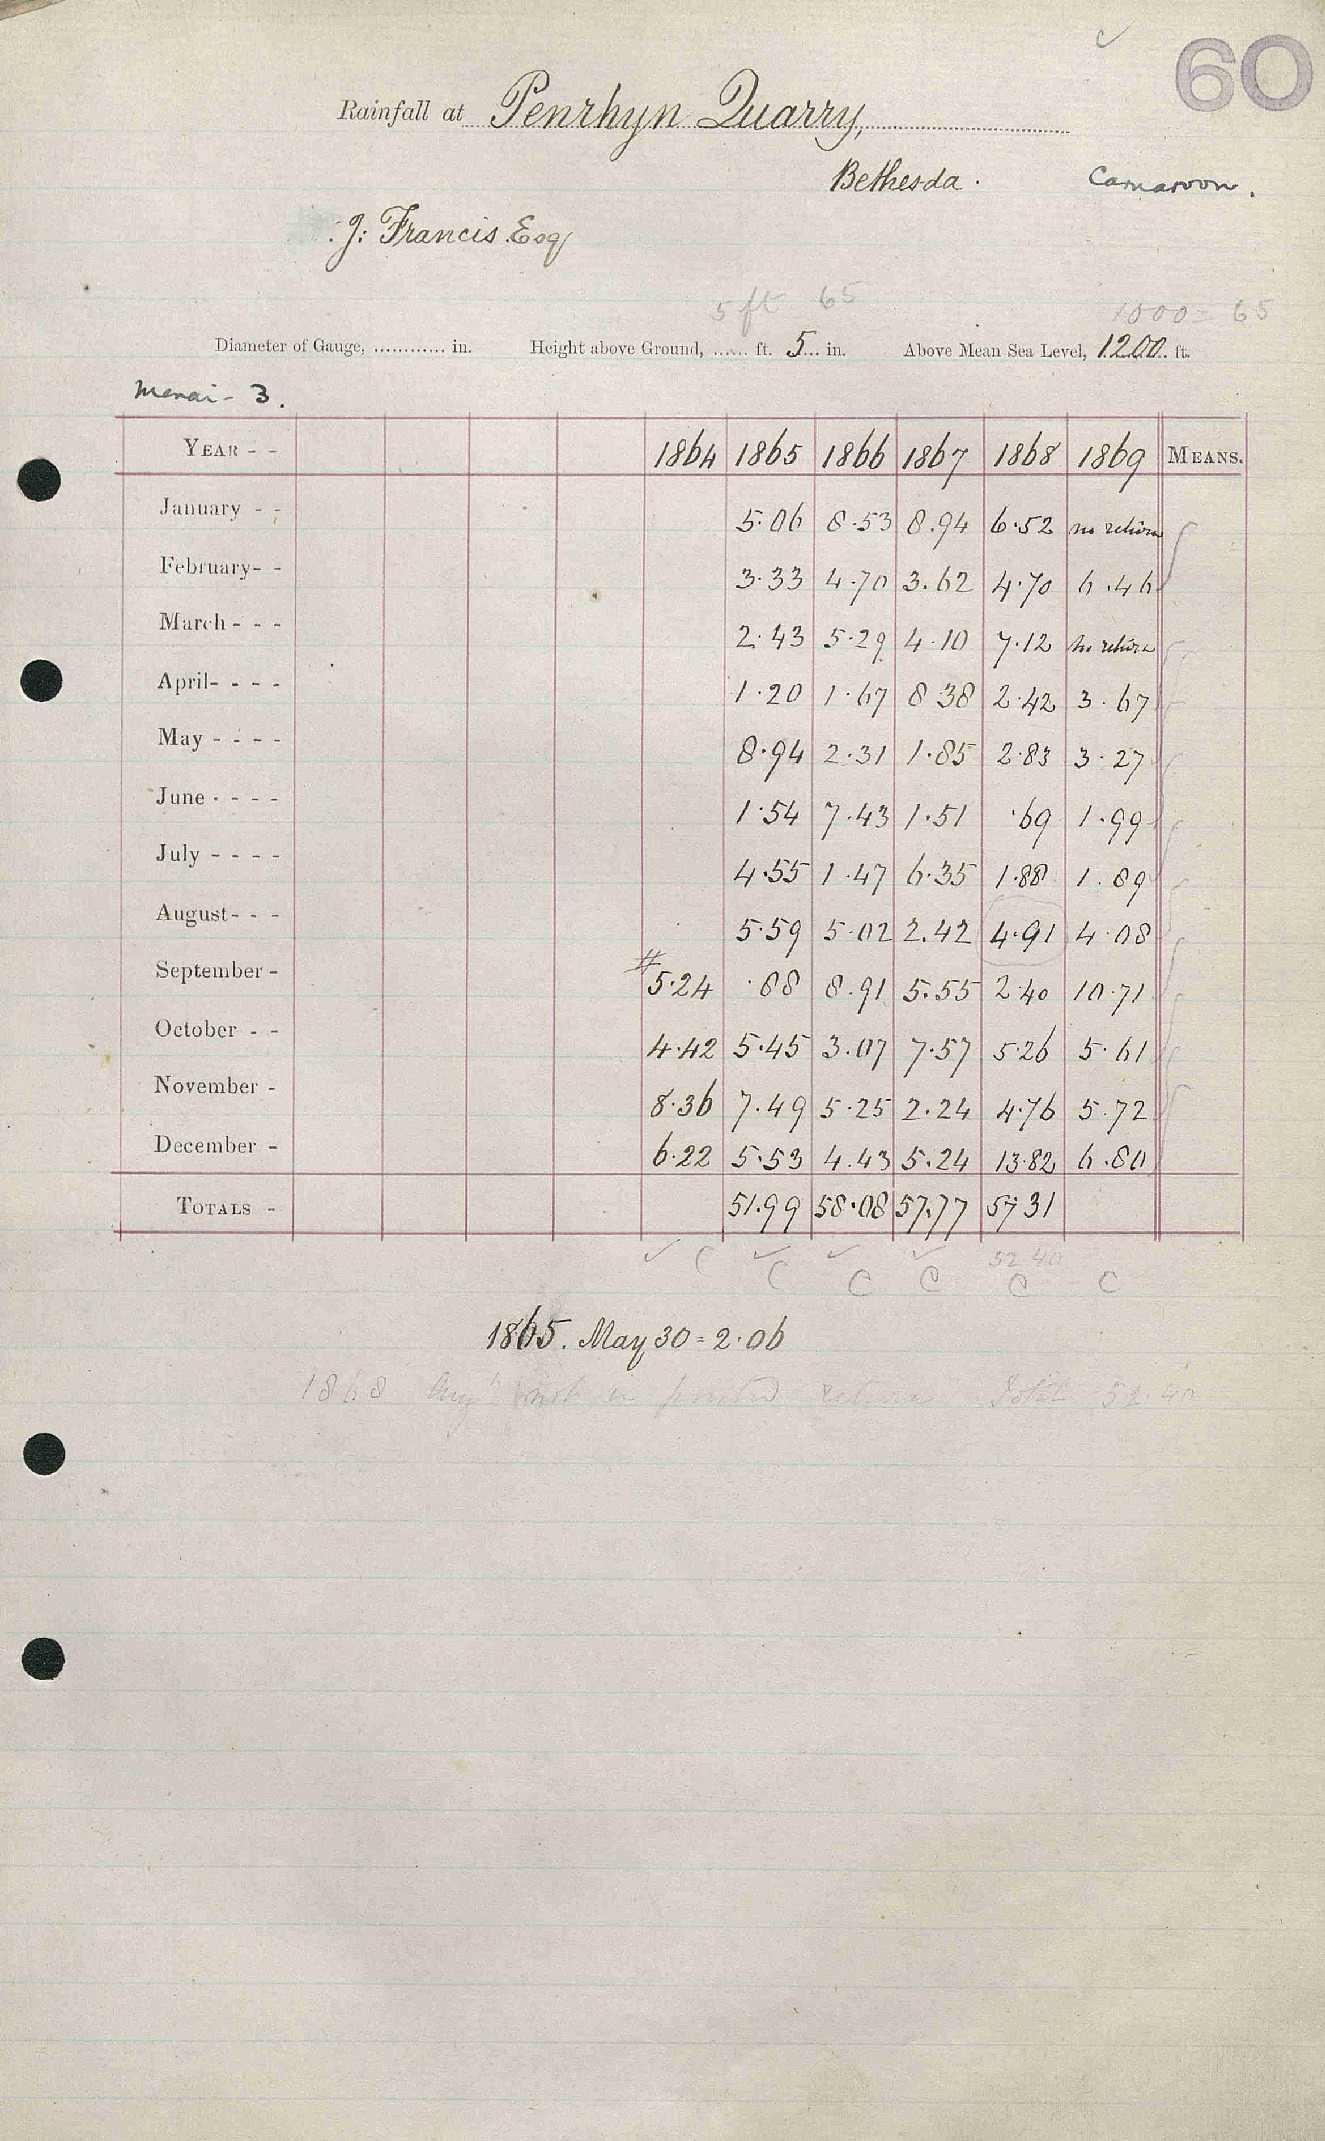 60
Rainfall at Penrhyn Quarry,
Bethesda. Carnarvon.
J. Francis Esq
5 ft 65 1000 = 65
Diameter of Gauge, ............ in. Height above Ground, ...... ft. 5... in. Above Mean Sea Level, 1200. ft.
Menai - 3.
YEAR - - 1864 1865 1866 1867 1868 1869 MEANS.
January - - 5.06 8.53 8.94 6.52 no return
February- - 3.33 4.70 3.62 4.70 6.46
March - - - 2.43 5.29 4.10 7.12 no return
April- - - - 1.20 1.67 8 38 2.42 3.67
May - - - - 8.94 2.31 1.85 2.83 3.27
June - - - - 1.54 7.43 1.51 .69 1.99
July - - - - 4.55 1.47 6.35 1.88 1.89
August- - - 5.59 5.02 2.42 4.91 4.08
#
September - 5.24 .88 8.91 5.55 2.40 10.71
October - - 4.42 5.45 3.07 7.57 5 26 5.61
November - 8.36 7.49 5.25 2.24 4.76 5.72
December - 6.22 5.53 4.43 5.24 13.82 6.80
TOTALS - 51.99 58.08 57.77 57 31
52 40
C C C C C C
1865. May 30 = 2.06
1868 Aug. not in printed returns Total 52.40